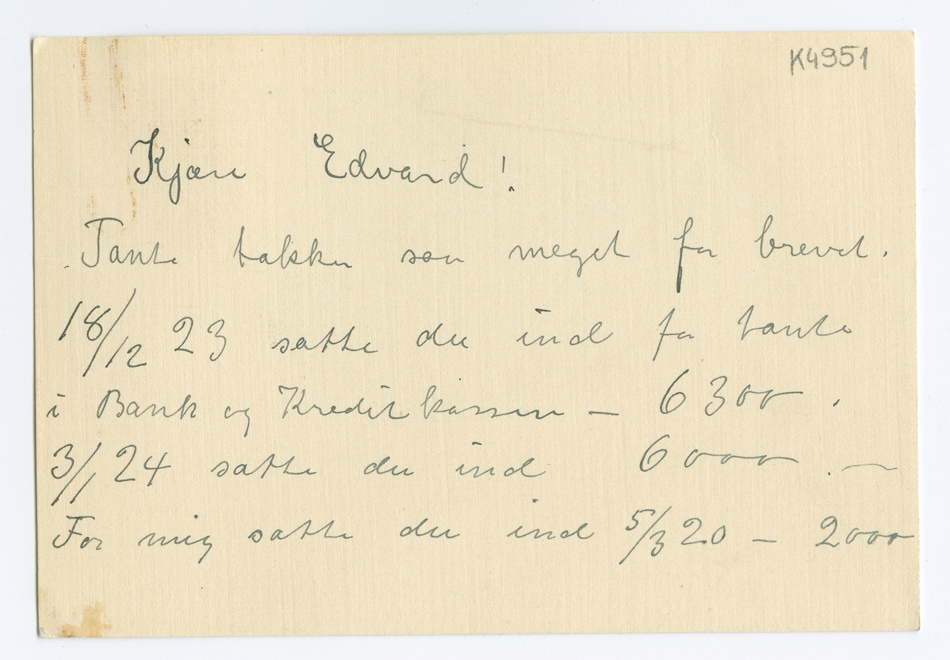 K4951
Kjære Edvard!
Tante takker saa meget for brevet.
18/12 23 satte du ind for tante
i Bank og Kreditkassen – 6300.
3/1 24 satte du ind 6000.—
For mig satte du ind 5/3 20 – 2000